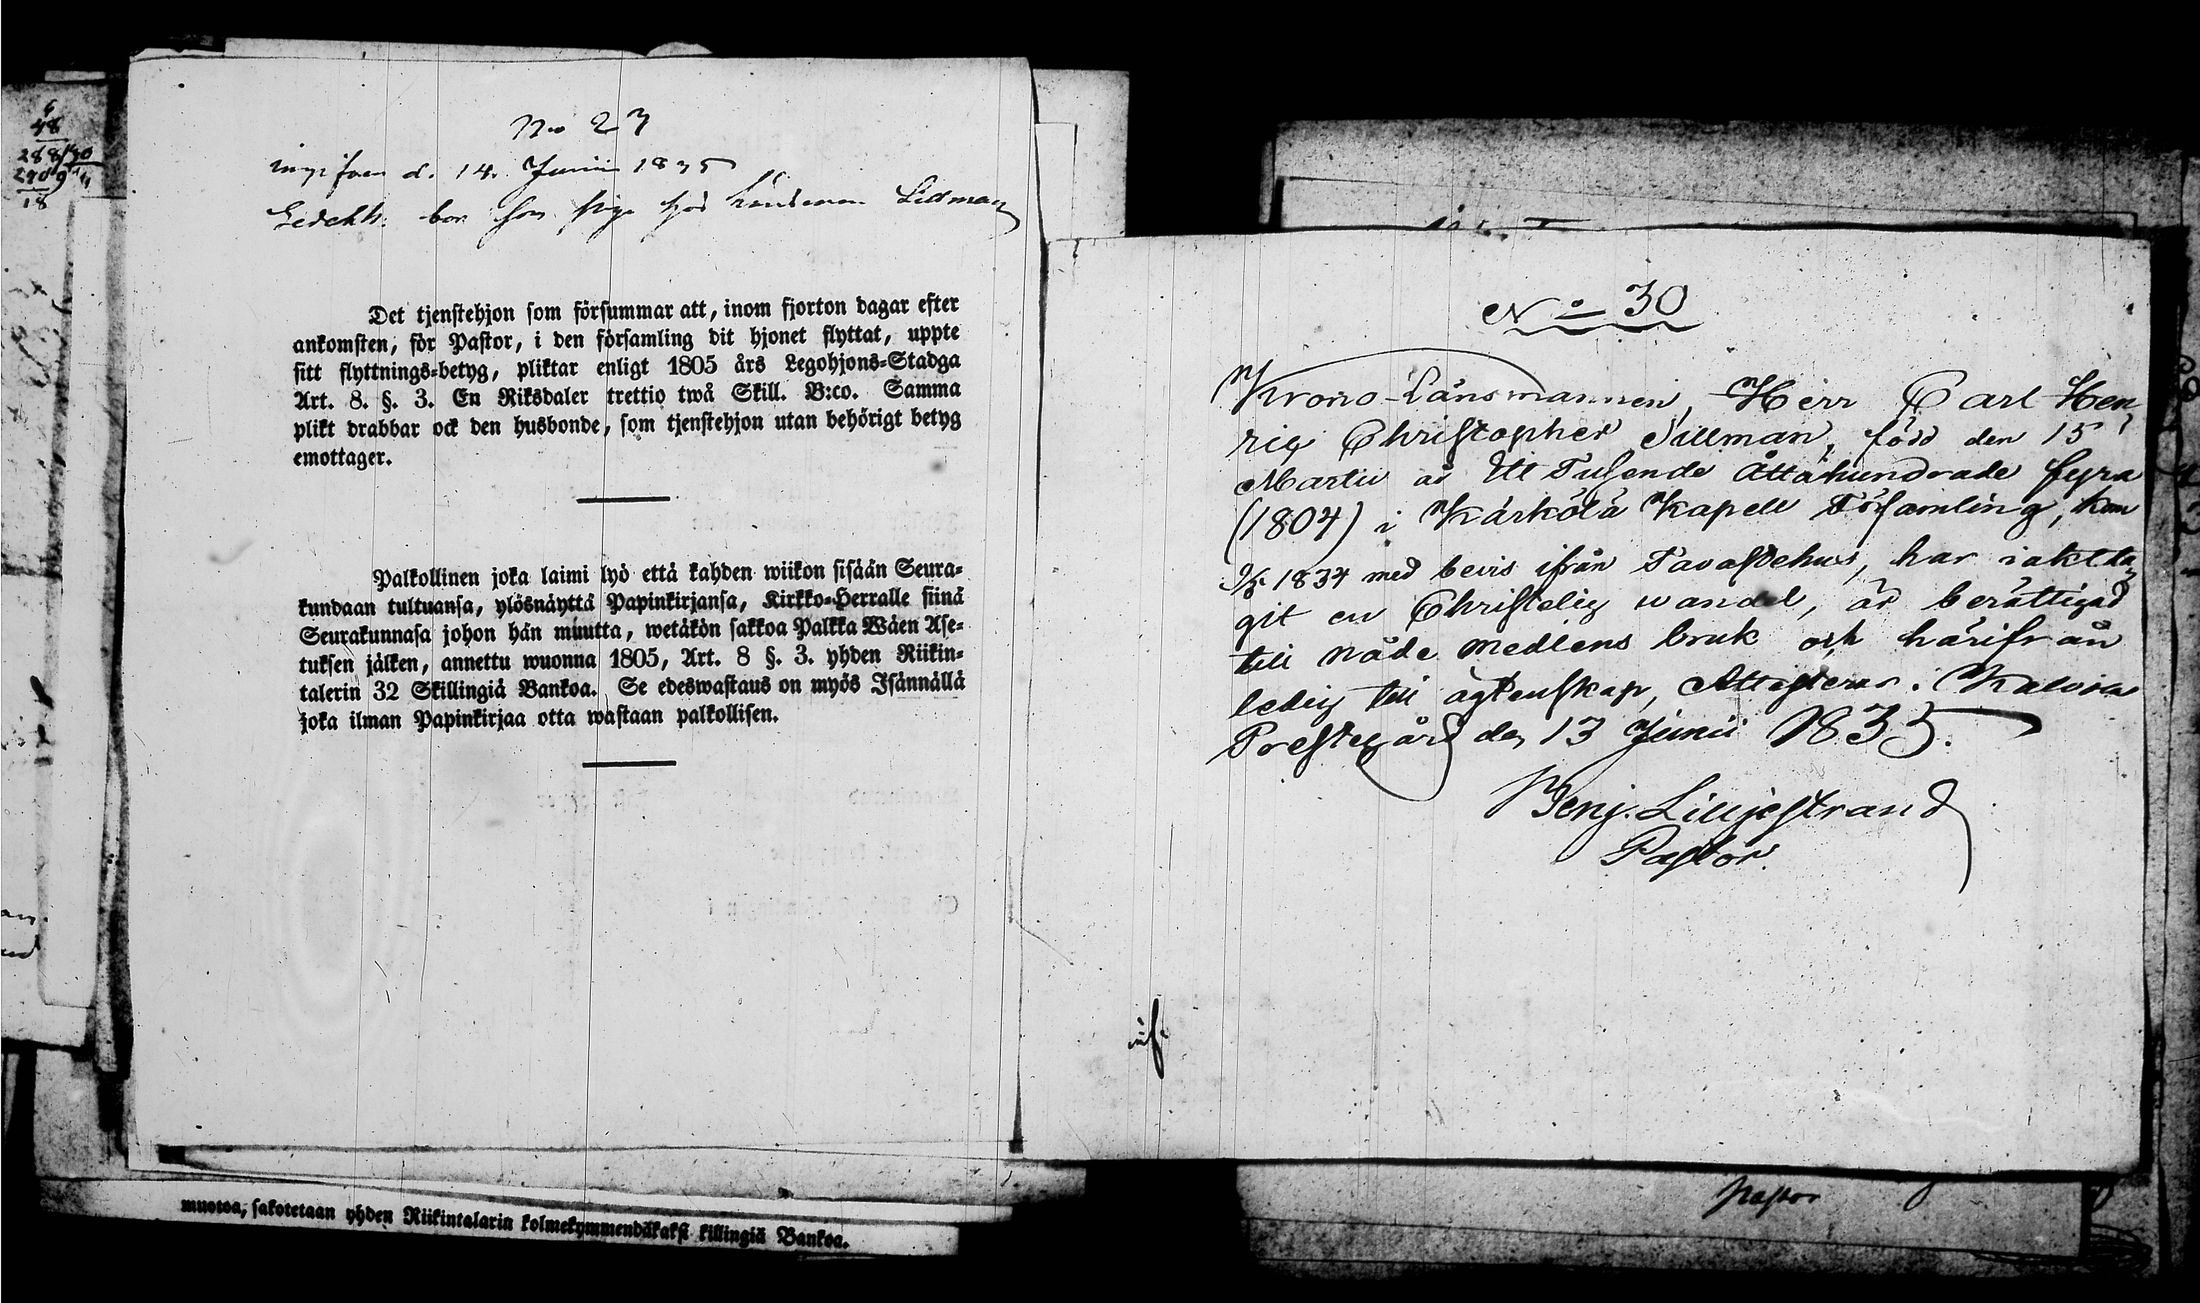 6
48
288
270
18
No 27
ingifven d. 14. Junii 1835
bor hos Lidman
Det tjenstehjon som försummar att, inom fjorton dagar efter
ankomsten, för Pastor, i den församling dit hjonet flyttat, uppte
sitt flyttnings-betyg, pliktar enligt 1805 års Legohjons-Stadga
Art. 8. §. 3. En Riksdaler trettio twå Skill. B:co. Samma
plikt drabbar ock den husbonde, som tjenstehjon utan behörigt betyg
emottager.
Palkollinen joka laimi lyö että kahden wiikon sisään Seura-
kundaan tultuansa, ylösnäyttä Papinkirjansa, Kirkko-Herralle siinä
Seurakunnasa johon hän muutta, wetäkön sakkoa Palkka Wäen Ase-
tuksen jälken, annettu wuonna 1805, Art. 8 §. 3. yhden Riikin-
talerin 32 Skillingiä Bankoa. Se edeswastaus on myös Isännällä
joka ilman Papinkirjaa otta wastaan palkollisen.
muowa, sakotetaan yhden Riikintalarin kolmekymmendäkaksi killingiä Bankoa.
No 30
Krono-Länsmannen, Herr Carl Hen
ric Christopher Sillman, född den 15
Martii år Ett Tusende Åttahundrade fyra
(1804) i Kärkölä Kapell Församling, kom
1834 med bevis ifrån Tavastehus, har iaktta
git en Christelig wandel, är berättigad
till nåde medlens bruk och härifrån
ledig till ägtenskap, Attesteras. Kalvola
Prestegård den 13 Junii 1835.
Benj. Liljestrand
Pastor.
Pastor